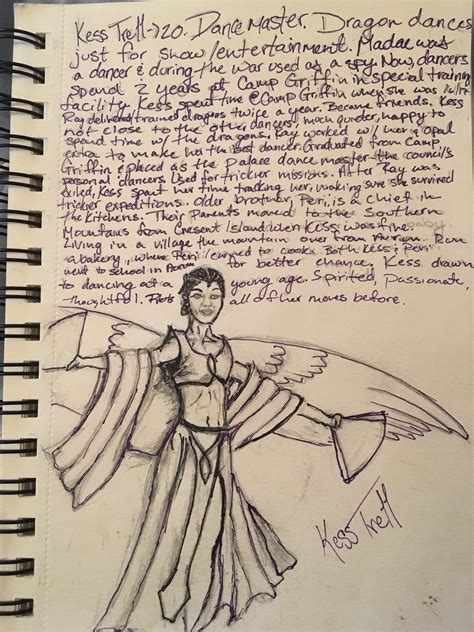 Kess Trett - 20. Dance Master. Dragon dances
just for show/entertainment. Madae was
a dancer & during the war used as a spy. Now, dancers
spend 2 years at Camp Griffin in special training
facility. Kess spent time @ Camp Griffin when she was 16/17
Ray delivered trained dragons twice a year. Became friends. Kess
not close to the other dancers, much quieter, happy to
spend time w/ the dragons. Ray worked w/ her & Opal
extra to make her the best dancer. Graduated from Camp
Griffin & placed as the Palace dance master - the council's
personal dancers used for trickier missions. After Ray was
Exiled, Kess spent her time tracking her, making sure she survived
trickier expeditions. Older brother, Peri, is a chief in
the kitchens. Their Parents moved to the Southern
Mountains from Cresent Island when Kess was five.
Living in a village the mountain over from
a bakery, where Peri learned to cook. Both Kess & Peri
went to school in for better chance. Kess drawn
to dancing at a young age. Spirited, Passionate,
thoughtful. all of her moves before.
Kess Trett